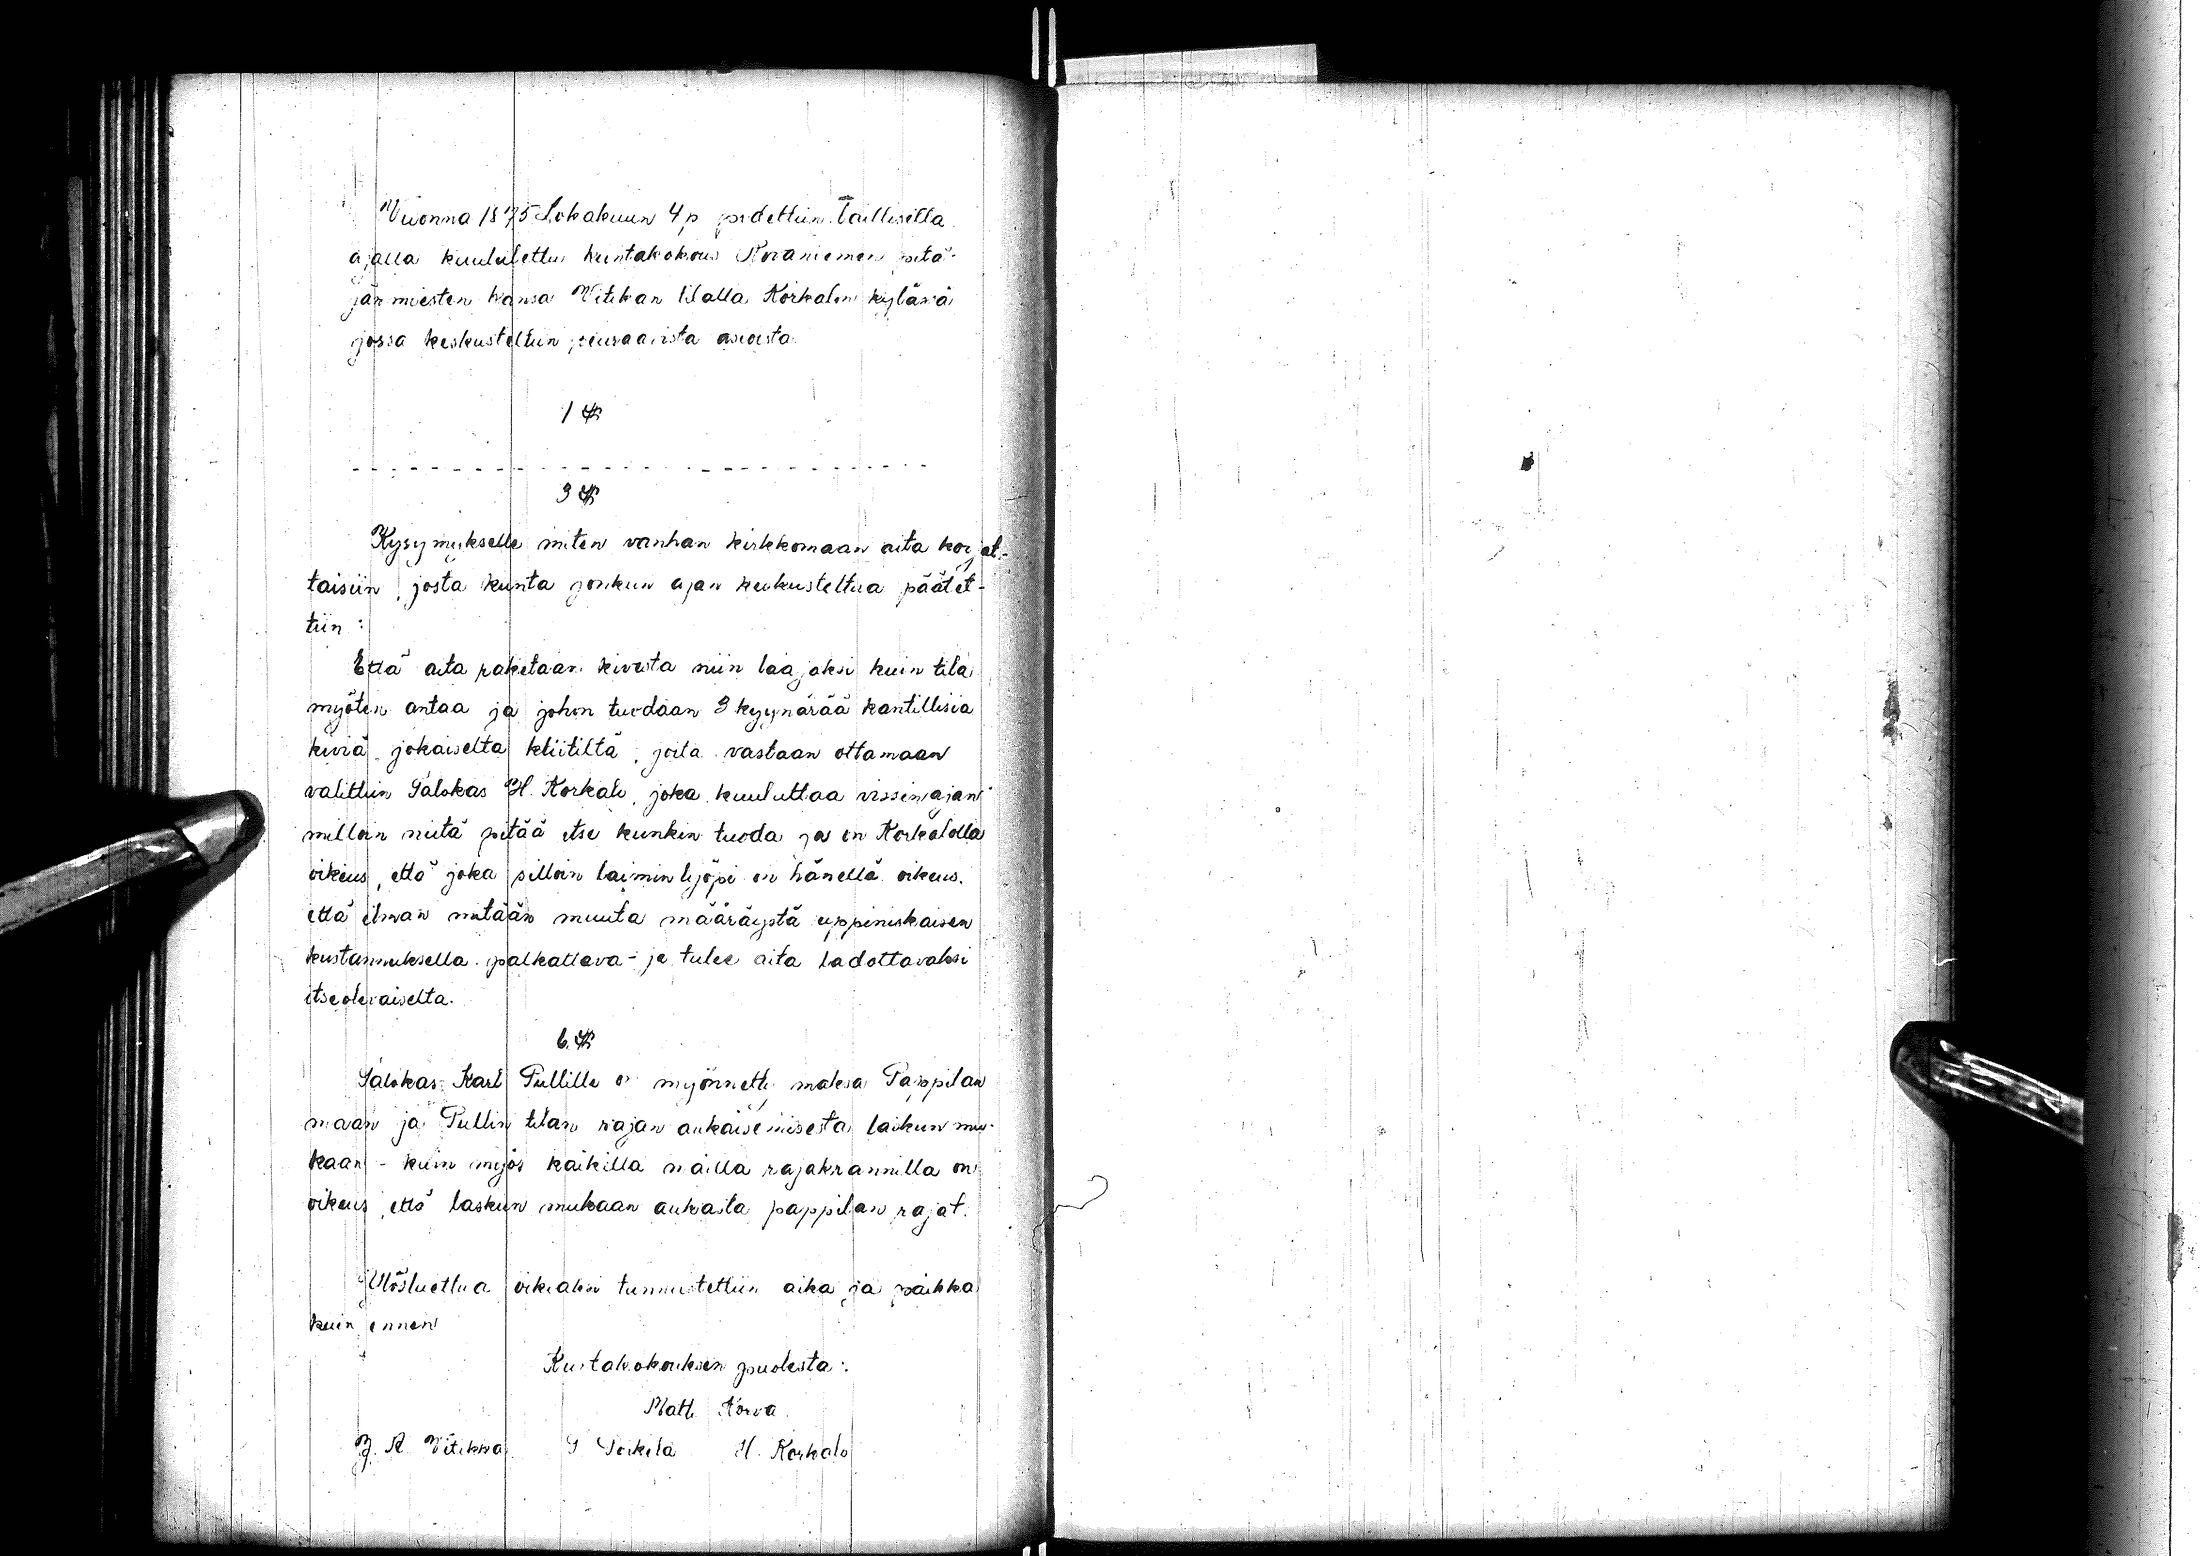 Vuonna 1875 Lokakuun 4 p pidettiin laillisella
ajalla kuulutettu kuntakokous Rovaniemen pitä-
jän miesten kansa Vitikan tilalla Korkalon kylässä
jossa keskusteltiin seuraavista asioista
1 §
- - - - - - - - - - - - - - - - - - - - - - - -
3 §
Kysymykselle miten vanhan kirkkomaan aita korjat-
taisiin, josta kunta jonkun ajan keskusteltua päätet-
tiin:
Että aita raketaan kivestä niin laajaksi kuin tila
myöten antaa ja johon tuodaan 3 kyynärää kantillisia
kiviä jokaiselta kliitiltä, joita vastaan ottamaan
valittiin Talokas H. Korkalo, joka kuuluttaa vissin ajan
milloin niitä pitää itse kunkin tuoda ja on Korkalolla
oikeus, että joka silloin laiminlyöpi on hänellä oikeus.
että ilman mitään muuta määräystä uppiniskaisen
kustannuksella palkattava - ja tulee aita ladottavaksi
itseolevaiselta.
6 §
Talokas Karl Pullille on myönnetty maksa Pappilan
maan ja Pullin tilan rajan aukaisemisesta laskun mu-
kaan - kuin myös kaikilla näillä rajakrannilla on
oikeus, että laskun mukaan aukaista pappilan rajat.
Ulosluettua oikiaksi tunnustettiin aika ja paikka
kuin ennen
Kuntakokouksen puolesta:
Matti Korva
J. A. Vitikka J Poikela H. Korkalo